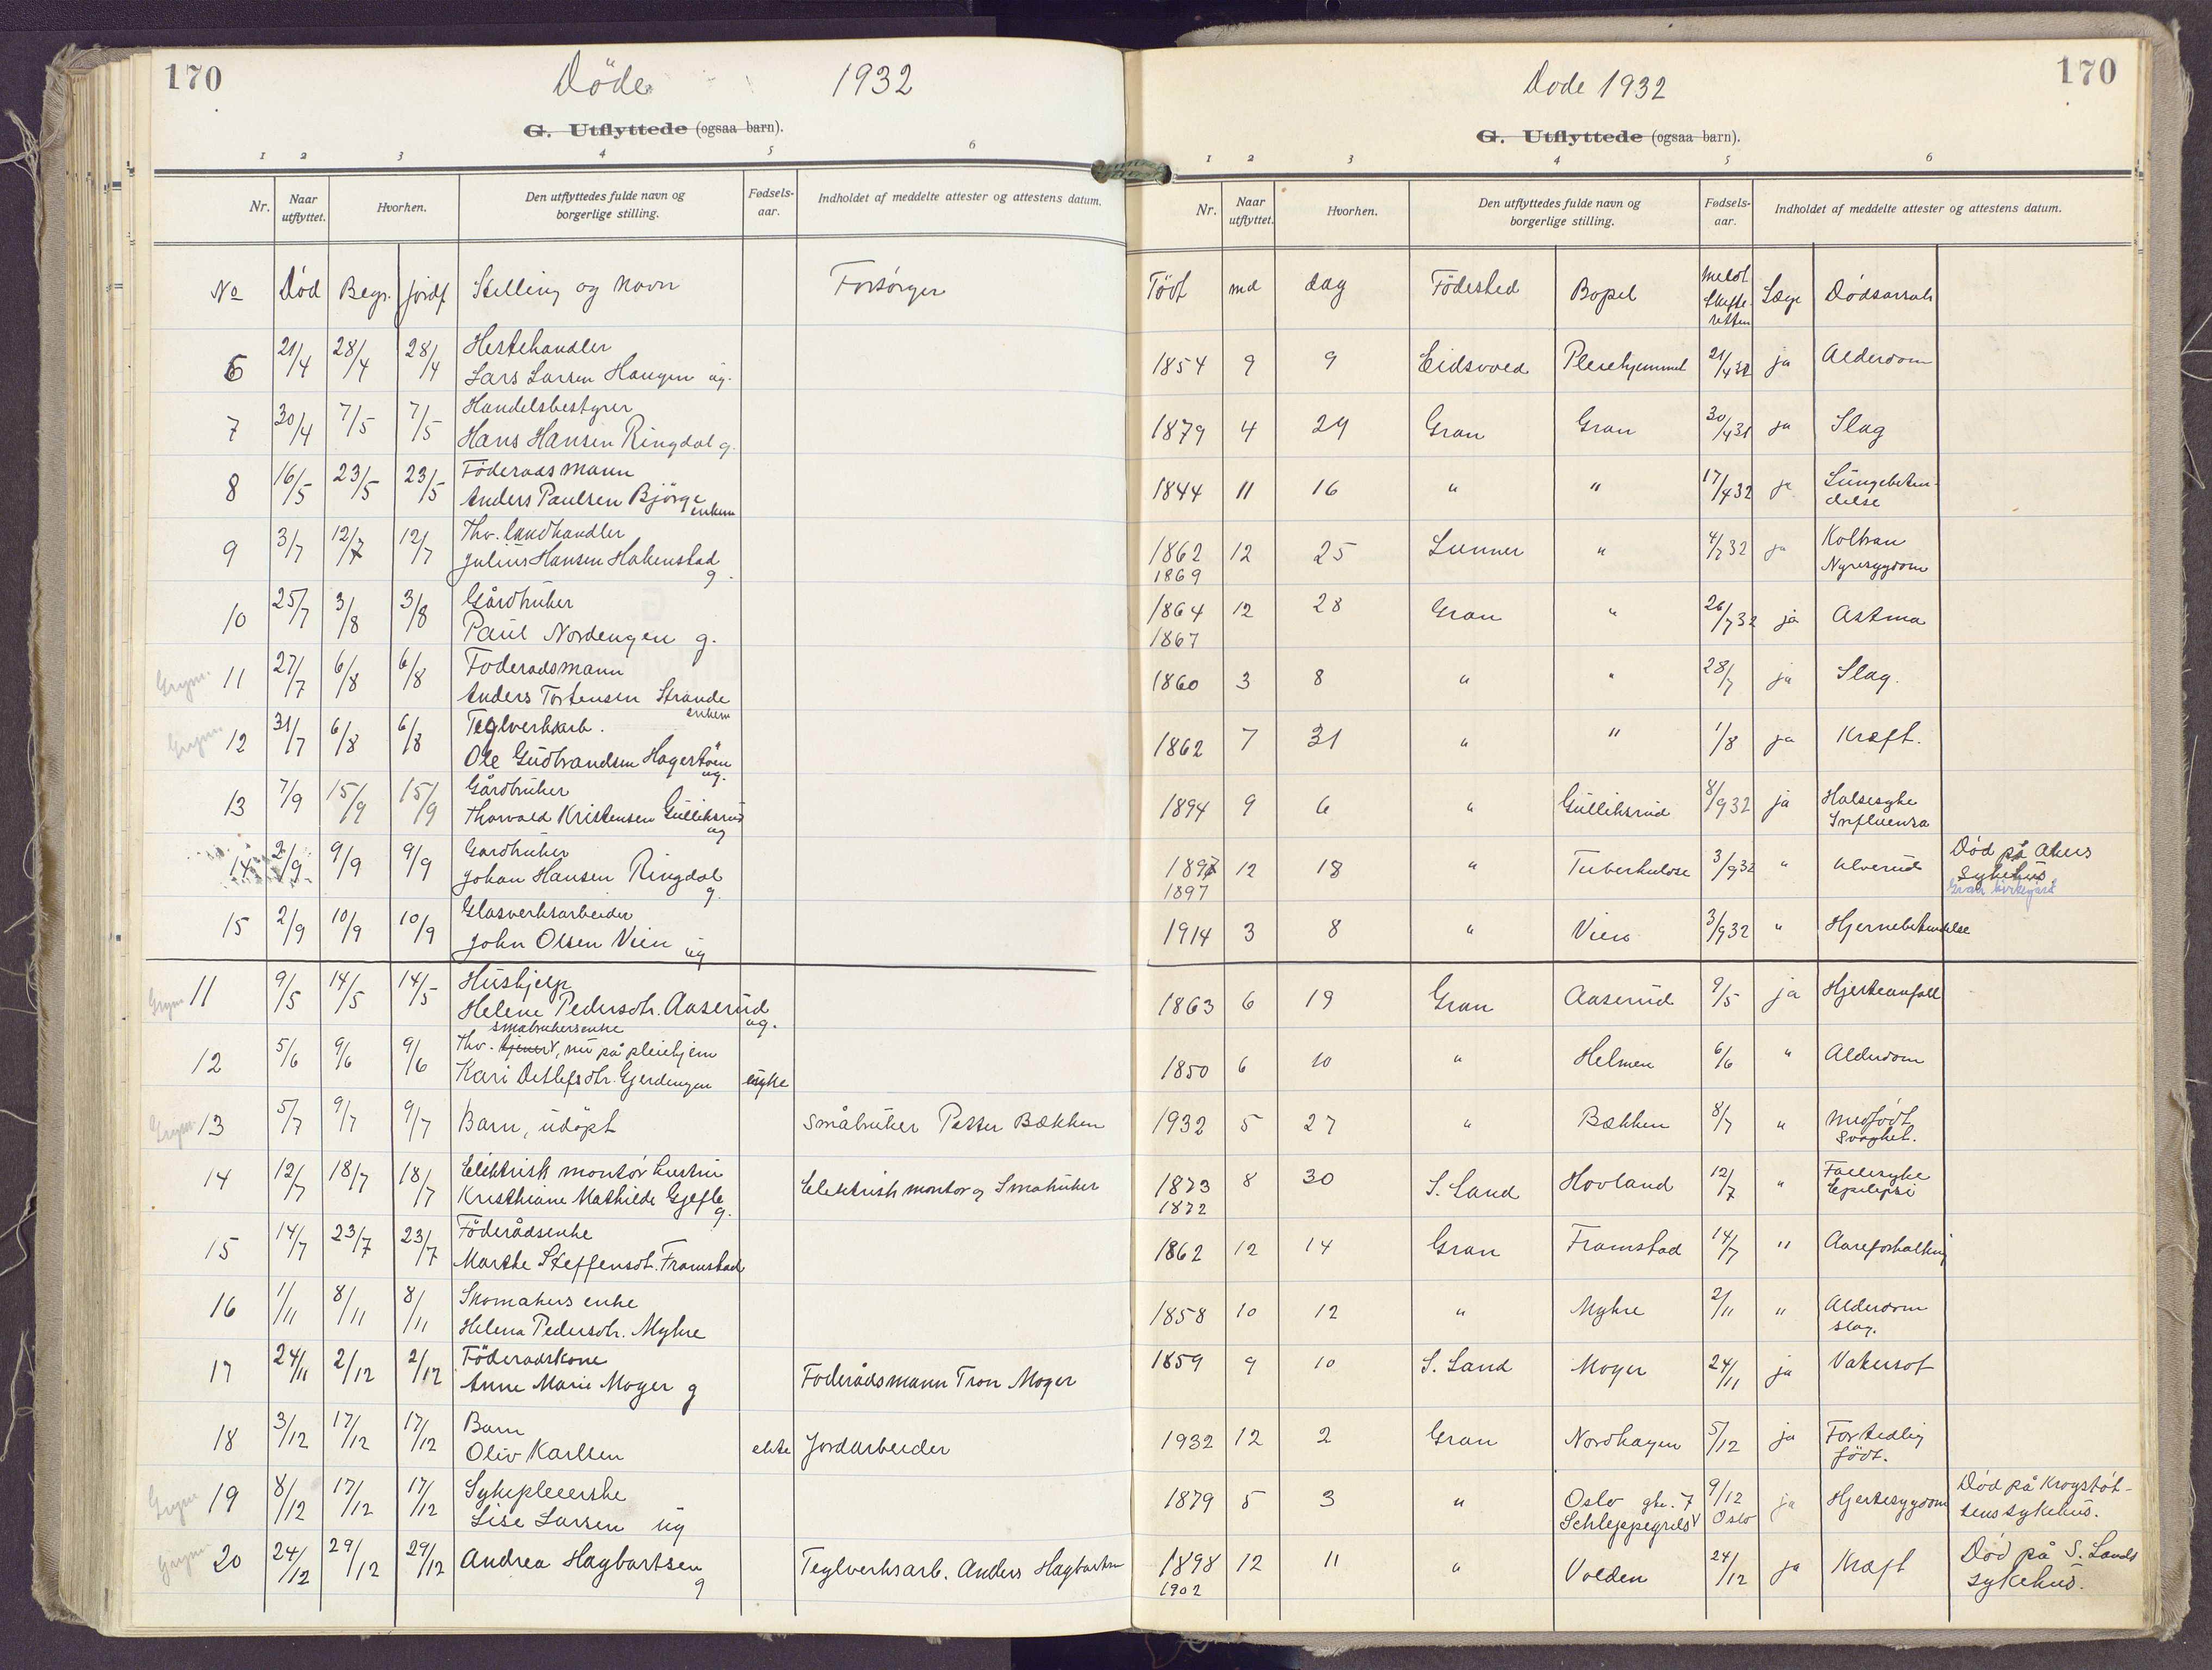 170
Döde 1932
G. Utflyttede (ogsaa barn).
1 2 3 4 5 6
Nr. Naar utflyttet. Hvorhen. Den utflyttedes fulde navn og borgerlige stilling. Fødsels-aar. Indholdet af meddelte attester og attestens datum.
No Död Begr. jordf Stilling og navn Forsörger
6 21/4 28/4 28/4 Hestehandler
Lars Larsen Haugen ug.
7 30/4 7/5 7/5 Handelsbestyrer
Hans Hansen Ringdal g.
8 16/5 23/5 23/5 Föderaadsmann
Anders Paulsen Björge enkem
9 3/7 12/7 12/7 Thv. landhandler
Julius Hansen Hakenstad g.
10 25/7 3/8 3/8 Gårdbruker
Paul Nordengen g.
Grym. 11 27/7 6/8 6/8 Foderadsmann
Anders Torstensen Strande enkem
Grym. 12 31/7 6/8 6/8 Teglverksarb.
Ole Gudbrandsen Hagerstöen ug.
13 7/9 15/9 15/9 Gårdbruker
Thorvald Kristensen Gulliksrud ug
14 2/9 9/9 9/9 Gardbruker
Johan Hansen Ringdal g.
15 2/9 10/9 10/9 Glasverksarbeider
John Olsen Vien ug
Grym 11 9/5 14/5 14/5 Hushjelp
Helene Pedersdtr. Aaserud ug.
småbrukersenke
12 5/6 9/6 9/6 Thv. tjener, nu på pleiehjem
Kari Detlefsdtr. Gjerdengen enke
Grym. 13 5/7 9/7 9/7 Barn, udöpt Småbruker Petter Bækken
14 12/7 18/7 18/7 Elektrisk montör hustru
Kristhiane Mathilde Gjefle g. Elektrisk montor og Smabruker
15 14/7 23/7 23/7 Föderådsenke
Marthe Steffensdt. Framstad
16 1/11 8/11 8/11 Skomakers enke
Helena Pedersdtr. Myhre
17 24/11 2/12 2/12 Föderadskone
Anne Marie Moger g Foderådsmann Tron Moger
18 3/12 17/12 17/12 Barn
Oliv Karlsen ekte Jordarbeider
Grym 19 8/12 17/12 17/12 Sykepleierske
Lise Larsen ug
Grym. 20 24/12 29/12 29/12 Andrea Hagbartsen g Teglverksarb. Anders Hagbartsen
170
Dode 1932
G. Utflyttede (ogsaa barn).
1 2 3 4 5 6
Nr. Naar utflyttet. Hvorhen. Den utflyttedes fulde navn og borgerlige stilling. Fødsels-aar. Indholdet af meddelte attester og attestens datum.
Födt md dag Födested Bopel meldt skifteretten Læge Dödsarsak
1854 9 9 Eidsvold Pleiehjemmet 21/4 32 ja Alderdom
1879 4 29 Gran Gran 30/4 31 ja Slag
1844 11 16 " " 17/4 32 ja Lungebeten-
delse
1862 12 25 Lunner " 4/7 32 ja Kolbran
1869 Nyresygdom
1864 12 28 Gran " 26/7 32 ja Astma
1867
1860 3 8 " " 28/7 ja Slag.
1862 7 31 " " 1/8 ja Kræft.
1894 9 6 " Gulliksrud 8/9 32 ja Halsesyke
Influenza
1897 12 18 " Tuberkulose 3/9 32 " Ulverud Död på Akers
1897 Sykehus
Gran kirkegård
1914 3 8 " Vien 3/9 32 " Hjernebetendelse
1863 6 19 Gran Aaserud 9/5 ja Hjerteanfall
1850 6 10 " Helmen 6/6 " Alderdom
1932 5 27 " Bækken 8/7 " Medfödt
Svaghet.
1873 8 30 S. Land Hovland 12/7 " Fallesyke
1872 Epilepsi
1862 12 14 Gran Framstad 14/7 " Aareforkalkning
1858 10 12 " Myhre 2/11 " Alderdom
slag.
1859 9 10 S. Land Moger 24/11 ja Vatersot
1932 12 2 Gran Nordhagen 5/12 ja For tidlig
födt.
1879 5 3 " Oslo gt. 7 9/12 ja Hjertesygdom Död på Krogstöt-
Schleppegrels Oslo tens sykehus.
1898 12 11 " Volden 24/12 ja Kræft Död på S. Lands
1902 sykehus.